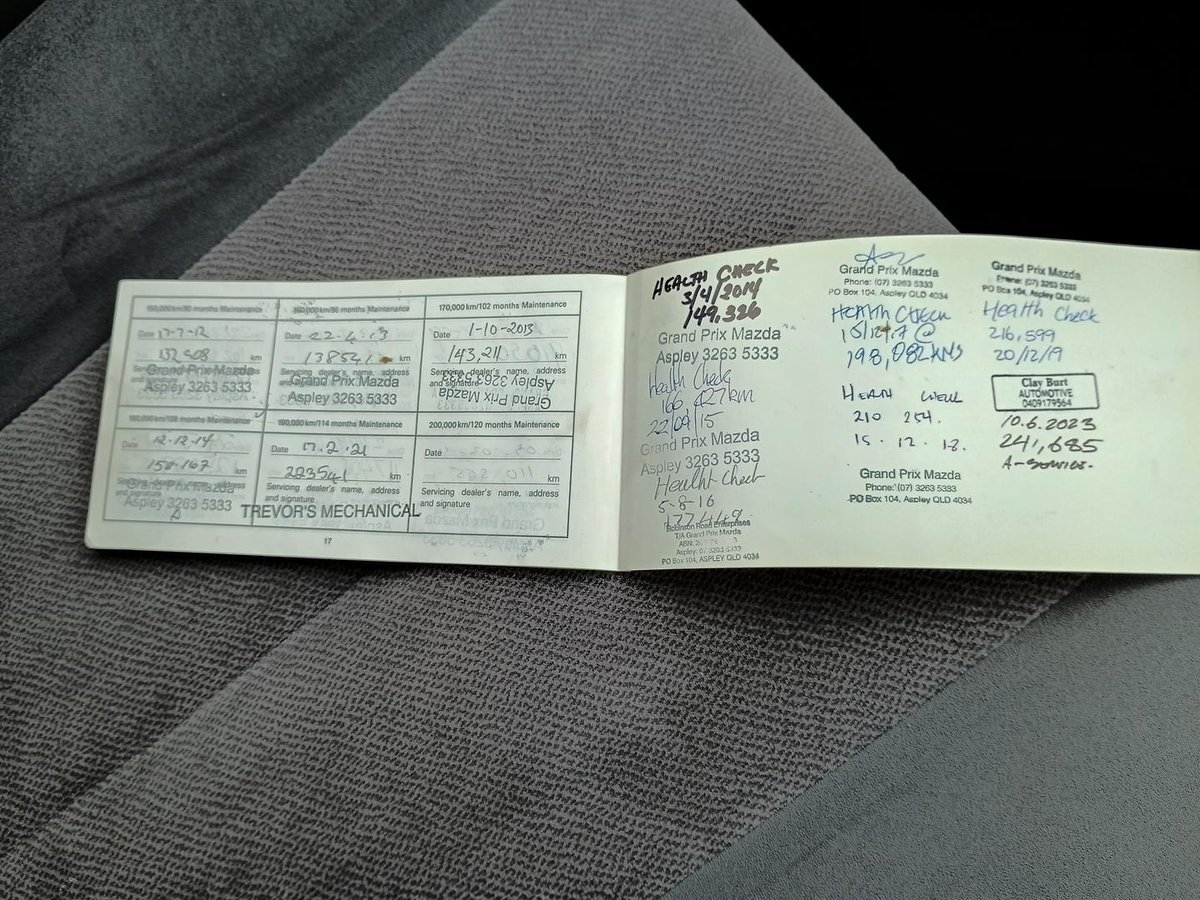 150,000 km/90 months Maintenance
Date 17-7-12
132 808 km
Grand Prix Mazda
Aspley 3263 5333
160,000 km/96 months Maintenance
Date 22-4-13
138541 km
Servicing dealer's name, address
Grand Prix Mazda
Aspley 3263 5333
170,000 km/102 months Maintenance
Date 1-10-2013
143,211 km
Servicing dealer's name, address
and signature
Grand Prix Mazda
Aspley 3263 5333
/108 months Maintenance
Date 12.12.14
158-167 km
Servicing dealer's name, address
Grand Prix Mazda
Aspley 3263 5333
190,000 km/114 months Maintenance
Date 17.2.21
223541 km
Servicing dealer's name, address
and signature
TREVOR'S MECHANICAL
200,000 km/120 months Maintenance
Date
km
Servicing dealer's name, address
and signature
17
HEALTH CHECK
3/4/2014
149,326
Grand Prix Mazda
Aspley 3263 5333
Health Check
166,427km
22/09/15
Grand Prix Mazda
Aspley 3263 5333
Health Check
5-8-16
Robinson Road Enterprises
T/A Grand Prix Mazda
ABN:
Aspley: 07 3263 5333
PO Box 104, ASPLEY QLD 4034
Grand Prix Mazda
Phone: (07) 3263 5333
PO Box 104, Aspley QLD 4034
Health Check
15/12.7 @
198,082KMS
210 254.
15.12.18.
Grand Prix Mazda
Phone: (07) 3263 5333
PO Box 104, Aspley QLD 4034
Grand Prix Mazda
Phone: (07) 3263 5333
PO Box 104, Aspley QLD 4034
Health Check
216,599
20/12/19
Clay Burt
AUTOMOTIVE
0409179564
10.6.2023
241,685
A-Service.